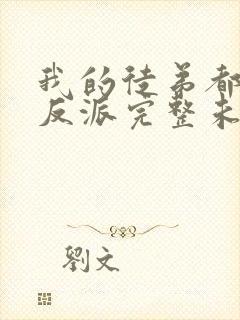 我的徒弟都
反派完整未
劉文